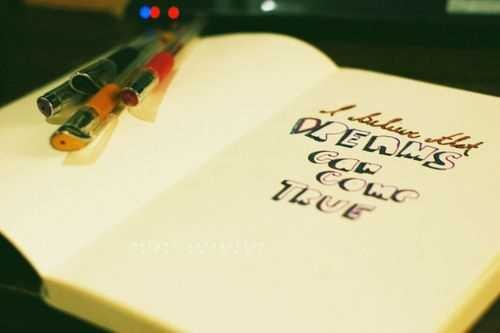 I believe that
DREAMS
CAN
COME
TRUE